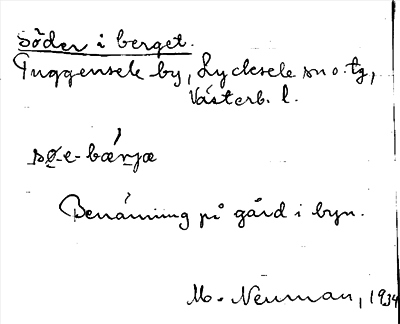 Söder i berget.
Tuggensele by, Lycksele sn o. tg,
Västerb. l.
sø̱-e-bǽ̱rjæ
Benämning på gård i byn.
M. Neuman, 1934